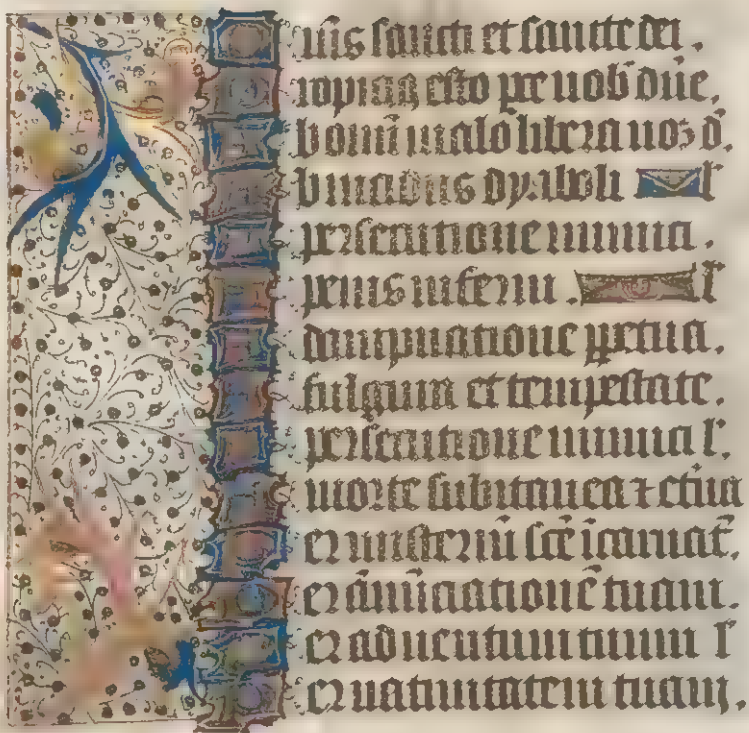 m̄s sancti et sancte dei .
ropitiꝰ esto p̄ce nob dn̄e.
b omni malo libera nos d.
b insidiis dyaboli l
persecutione inimici .
penis inferni . l
dampnatione ꝑpetua .
fulgura et tempestate .
persecutione inimici l .
morte subitanea ⁊ et̄na
er misteriū scē īcarnat̄ .
er ānūciationē tuam .
er aduentum tuum l
er natiuitatem tuam .